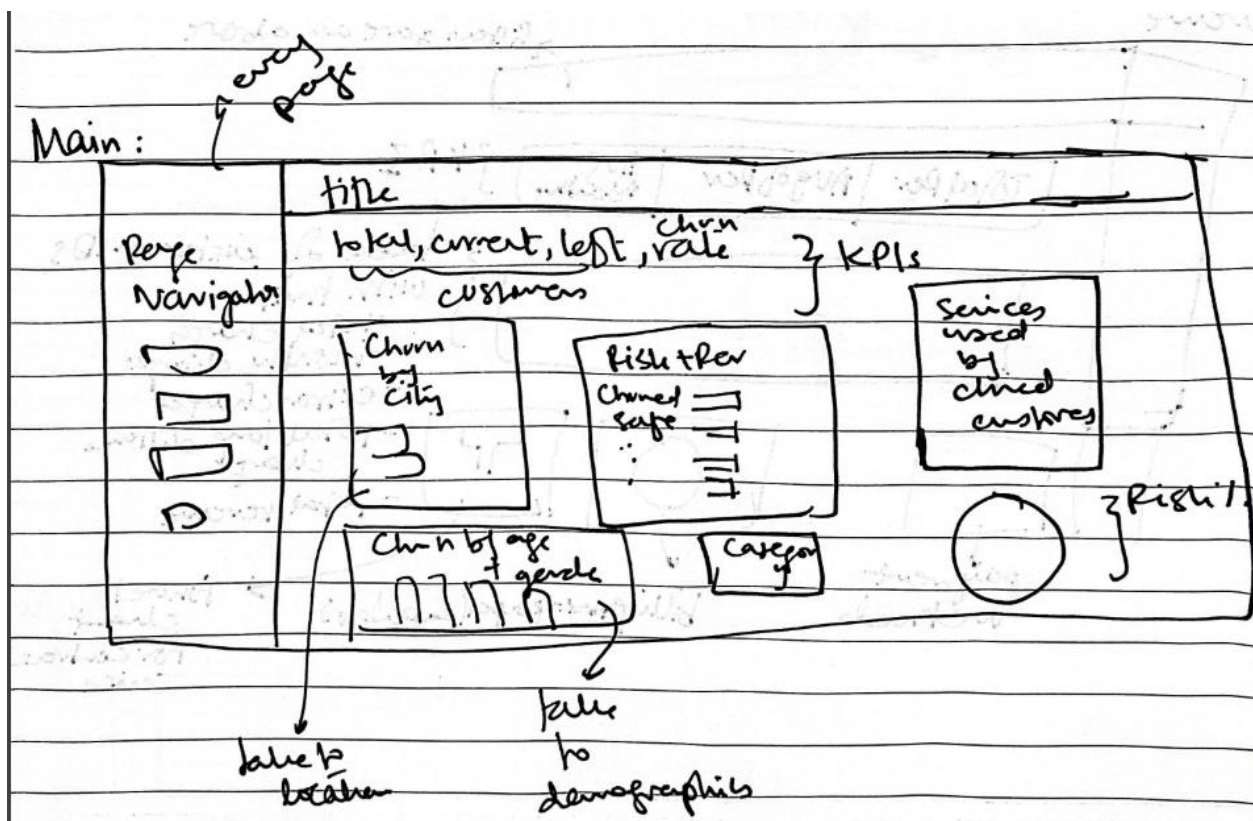 every
page
Main :
title
Page
Navigator
total, current, left, churn rate
customers
} KPIs
Churn
by
city
Risk + Rev
Churned
safe
Services
used
by
churned
customers
} Risk %
Churn by age
+ gender
Category
take to
location
take
to
demographics